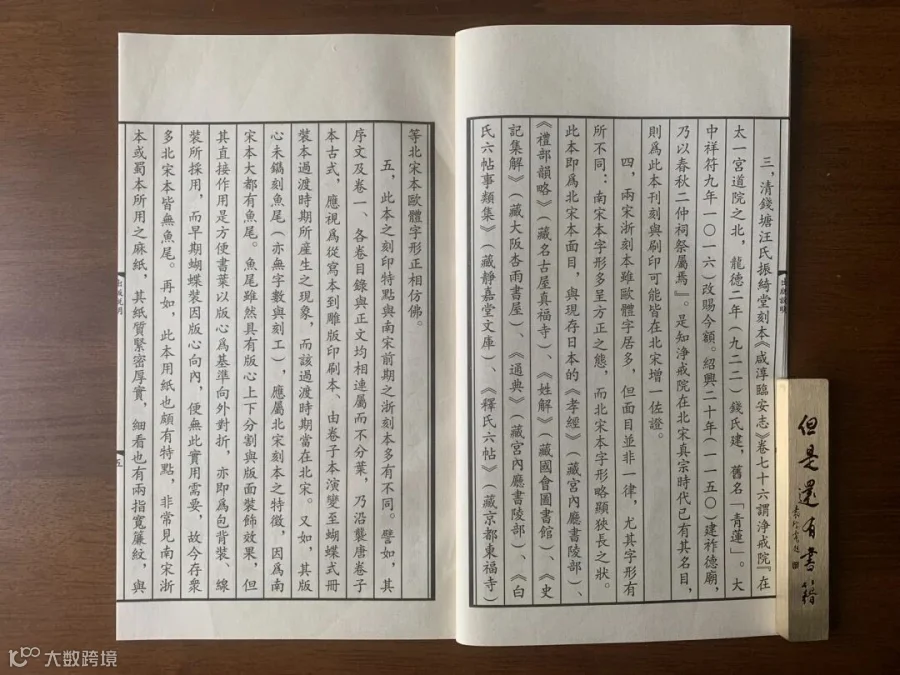 三，清錢塘汪氏振綺堂刻本《咸淳臨安志》卷七十六謂淨戒院『在
太一宮道院之北，龍德二年（九二二）錢氏建，舊名「青蓮」。大
中祥符九年（一〇一六）改賜今額。紹興二十年（一一五〇）建祚德廟，
乃以春秋二仲祠祭屬焉』。是知淨戒院在北宋真宗時代已有其名目，
則爲此本刊刻與刷印可能皆在北宋增一佐證。
四，兩宋浙刻本雖歐體字居多，但面目並非一律，尤其字形有
所不同：南宋本字形多呈方正之態，而北宋本字形略顯狹長之狀。
此本即爲北宋本面目，與現存日本的《孝經》（藏宮內廳書陵部）、
《禮部韻略》（藏名古屋真福寺）、《姓解》（藏國會圖書館）、《史
記集解》（藏大阪杏雨書屋）、《通典》（藏宮內廳書陵部）、《白
氏六帖事類集》（藏靜嘉堂文庫）、《釋氏六帖》（藏京都東福寺）
等北宋本歐體字形正相仿佛。
五，此本之刻印特點與南宋前期之浙刻本多有不同。譬如，其
序文及卷一、各卷目錄與正文均相連屬而不分葉，乃沿襲唐卷子
本古式，應視爲從寫本到雕版印刷本、由卷子本演變至蝴蝶式冊
裝本過渡時期所産生之現象，而該過渡時期當在北宋。又如，其版
心未鐫刻魚尾（亦無字數與刻工），應屬北宋刻本之特徵，因爲南
宋本大都有魚尾。魚尾雖然具有版心上下分割與版面裝飾效果，但
其直接作用是方便書葉以版心爲基準向外對折，亦即爲包背裝、線
裝所採用，而早期蝴蝶裝因版心向內，便無此實用需要，故今存衆
多北宋本皆無魚尾。再如，此本用紙也頗有特點，非常見南宋浙
本或蜀本所用之麻紙，其紙質緊密厚實，細看也有兩指寬簾紋，與
出版說明
五
但是還有書籍
大數跨境